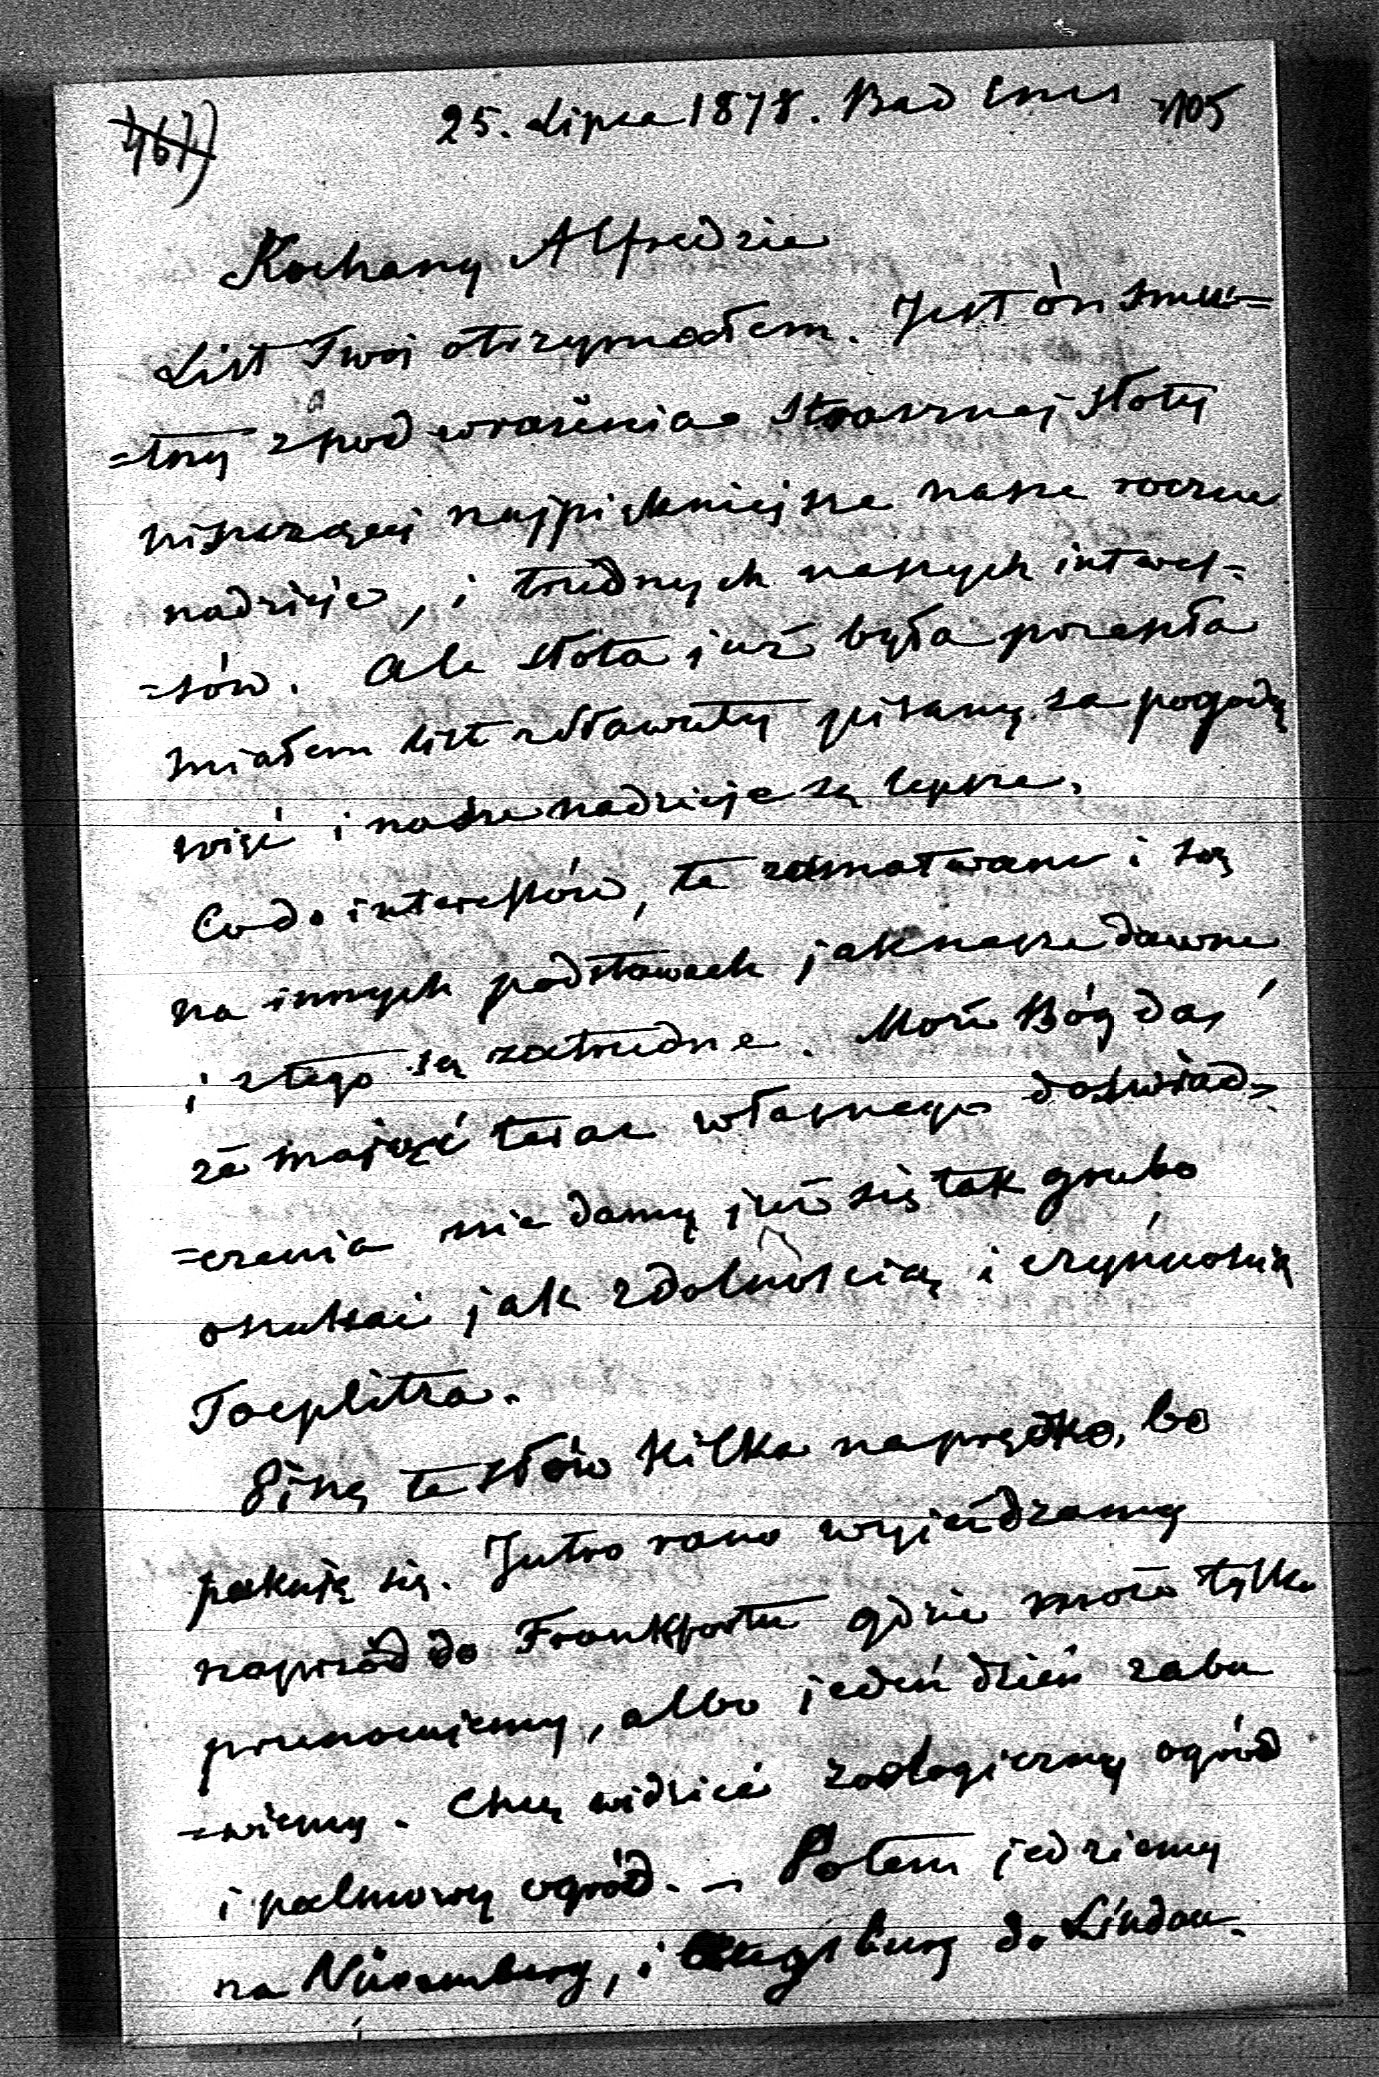 467)
25. Lipca 1878. Bad Ems 105
Kochany Alfredzie
List Twój otrzymałem. Jest ón smu=
=tny z pod wrażenia strasznej słoty
niszczącej najpiękniejsze nasze roczne
nadzieje, i trudnych naszych interes=
=sów. Ale słota już była przeszła
miałem list z Sławuty pisany za pogody
więć i nasze nadzieje są lepsze.
Co do interessów, te zamotwane i są
na innych podstawach jak nasze dawne,
i z tego są zatrudne. Może Bóg da,
że mająć teraz własnego doświad=
=czenia nie damy już się tak grubo
oszukać jak zdolnością i czynnością
Toeplitza.
Piszę te słów kilka naprędko, bo
pakuję się. Jutro rano wyjeżdzamy
naprzód do Frankfortu gdzie może tylko
przenocujemy, albo jedeń dzień zaba
=wiemy. Chcę widzieć zoologiczny ogród
i palmowy ogród. – Potem jedziemy
na Nüremberg, i Augsburg do Lindau.